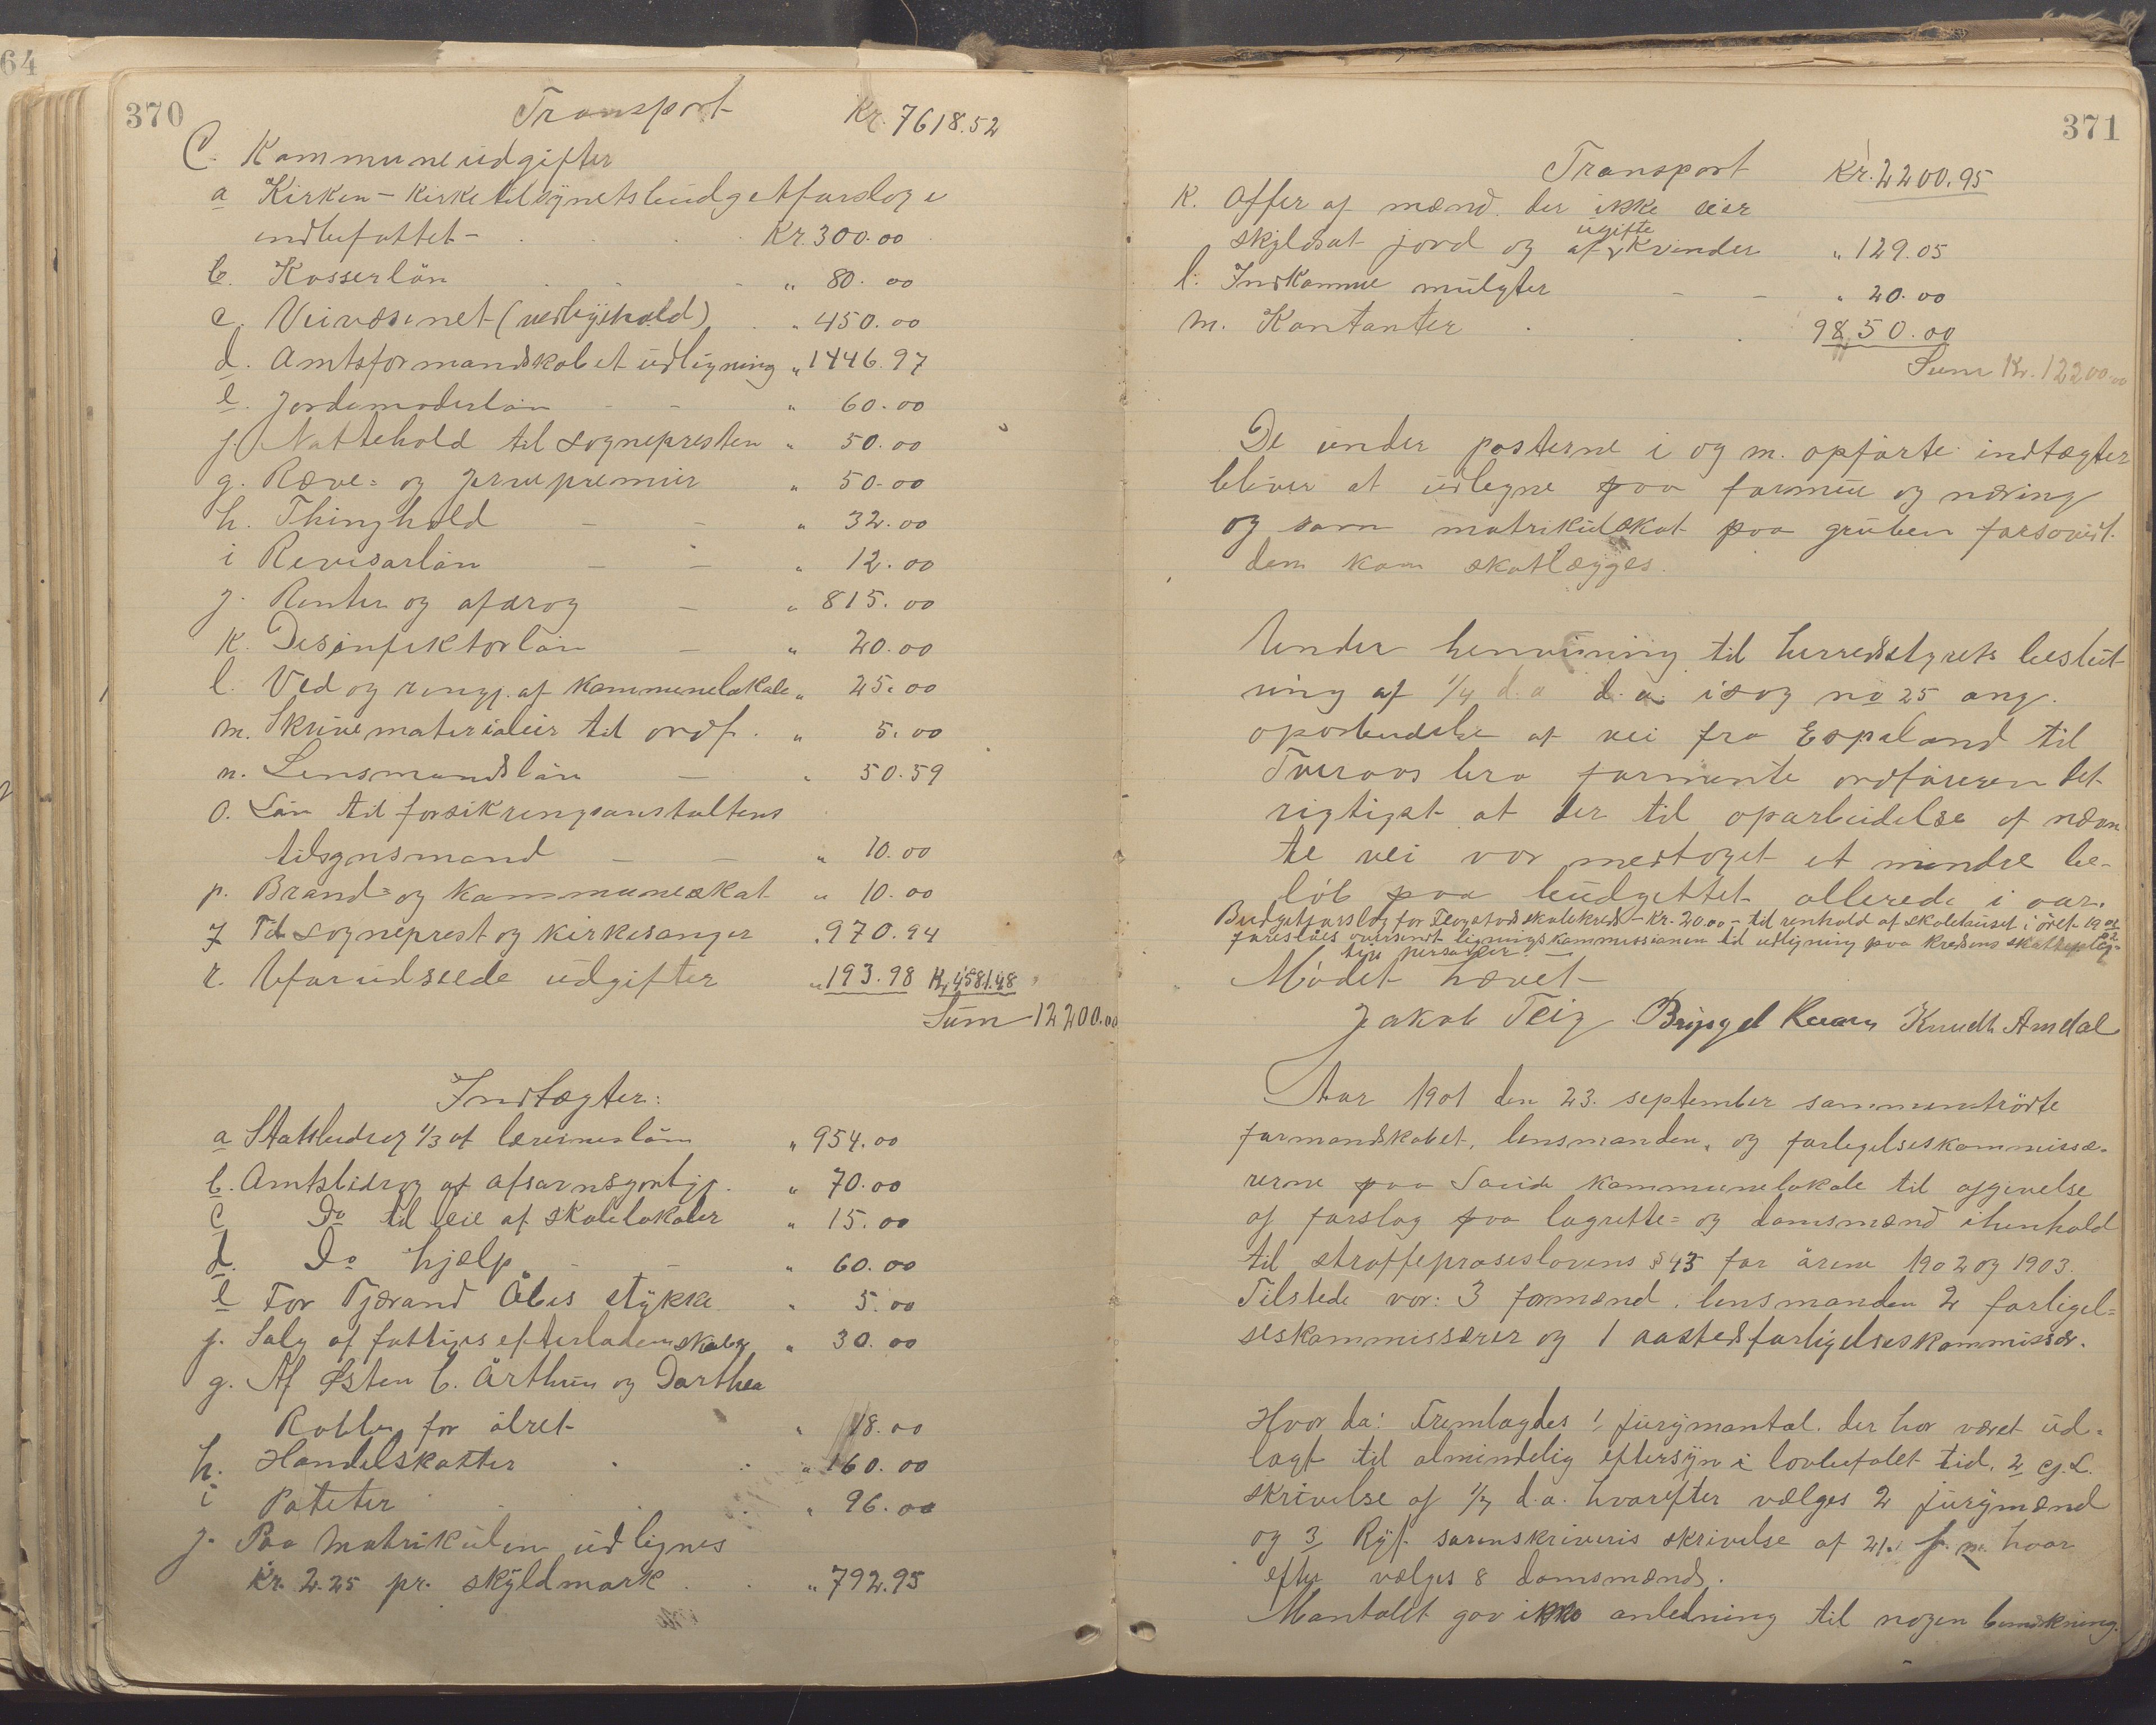 64
370
Transport Kr. 7618.52
C. Kommuneudgifter
a Kirken - kirketilsynets budgetforslag i
indbefattet - Kr. 300.00
b. Kasserløn " 80.00
c. Veivæsenet (vedligehold) " 450.00
d. Amtsformandskabet udligning " 1446.97
e. Jordemoderløn " 60.00
f. Nattehold til sognepresten " 50.00
g. Ræve= og jervepremier " 50.00
h. Thinghold " 32.00
i Revisorløn " 12.00
j. Renter og afdrag " 815.00
k. Desinfektorløn " 20.00
l. Ved og rengj. af kommunelokale " 25.00
m. Skrivematerialier til ordf. " 5.00
n. Lensmandsløn " 50.59
o. Løn til forsikringsanstaltens
tilsynsmand " 10.00
p. Brand= og kommuneskat " 10.00
q Til sogneprest og kirkesanger " 970.94
r. Uforudseede udgifter " 193.98 Kr. 4581.48
Sum 12200.00
Indtægter:
a Statsbidrag 1/3 af lærernes løn " 954.00
b. Amtsbidrag af afsavnsgodtgj. " 70.00
c Do til leie af skolelokaler " 15.00
d. Do hjælp " 60.00
e For Tjærand Åbes stykke " 5.00
f. Salg af fattiges efterladenskaber " 30.00
g. Af Østen C. Årthun og Dorthea
for ålret " 18.00
h. Handelskatter " 160.00
i Pateter " 96.00
j. Paa matrikulen udlignes
kr. 2.25 pr. skyldmark " 792.95
371
Transport Kr. 2200.95
k. Offer af mænd der ikke eier
skyldsat jord og af ugifte kvinder " 129.05
l. Indkomne mulgter " 20.00
m. Kontanter 9850.00
Sum Kr. 12200.00
De under posterne i og m. opførte indtægter
bliver at udlegne paa formue og næring
og som matrikulskat paa gruben forsovidt
dem kan skatlægges.
Under henvisning til herredsstyrets beslut
ning af 1/4 d.a d.a. isag no 25 ang.
oparbeidelse af vei fra Espeland til
Tveraas bro formente ordføreren det
rigtigst at der til oparbeidelse af næv
te vei var medtaget et mindre be-
løb paa budgettet allerede i aar.
Budgetforslag for skolekreds - Kr. 20.00 - til renhold af skolehuset i året 1902
foreslåes oversendt ligningskommissionen til udligning paa kredsens skattepleg=
tige personer.
Mødet hævet
Jakob Teig Knudt Amdal
Aar 1901 den 23. september sammentrådte
formandskabet, lensmanden, og forligelseskommissæ-
rerne paa Sauda kommunelokale til afgivelse
af forslag paa lagrette= og domsmænd ihenhold
til straffeproseslovens § 43 for årene 1902 og 1903.
Tilstede var: 3 formænd, lensmanden 2 forligel=
seskommissærer og 1 aastedsforligelseskommissær.
Hvor da: Fremlagdes 1, jurymantal, der har været ud=
lagt til almindelig eftersyn i lovbefalet tid, 2 cf. L.
skrivelse af 1/7 d.a. hvorefter vælges 2 jurymænd
og 3 Ryf. sorenskriveris skrivelse af 21. f. m. hvor
efter vælges 8 domsmænd.
Mantallet gav ikke anledning til nogen bemærkning.